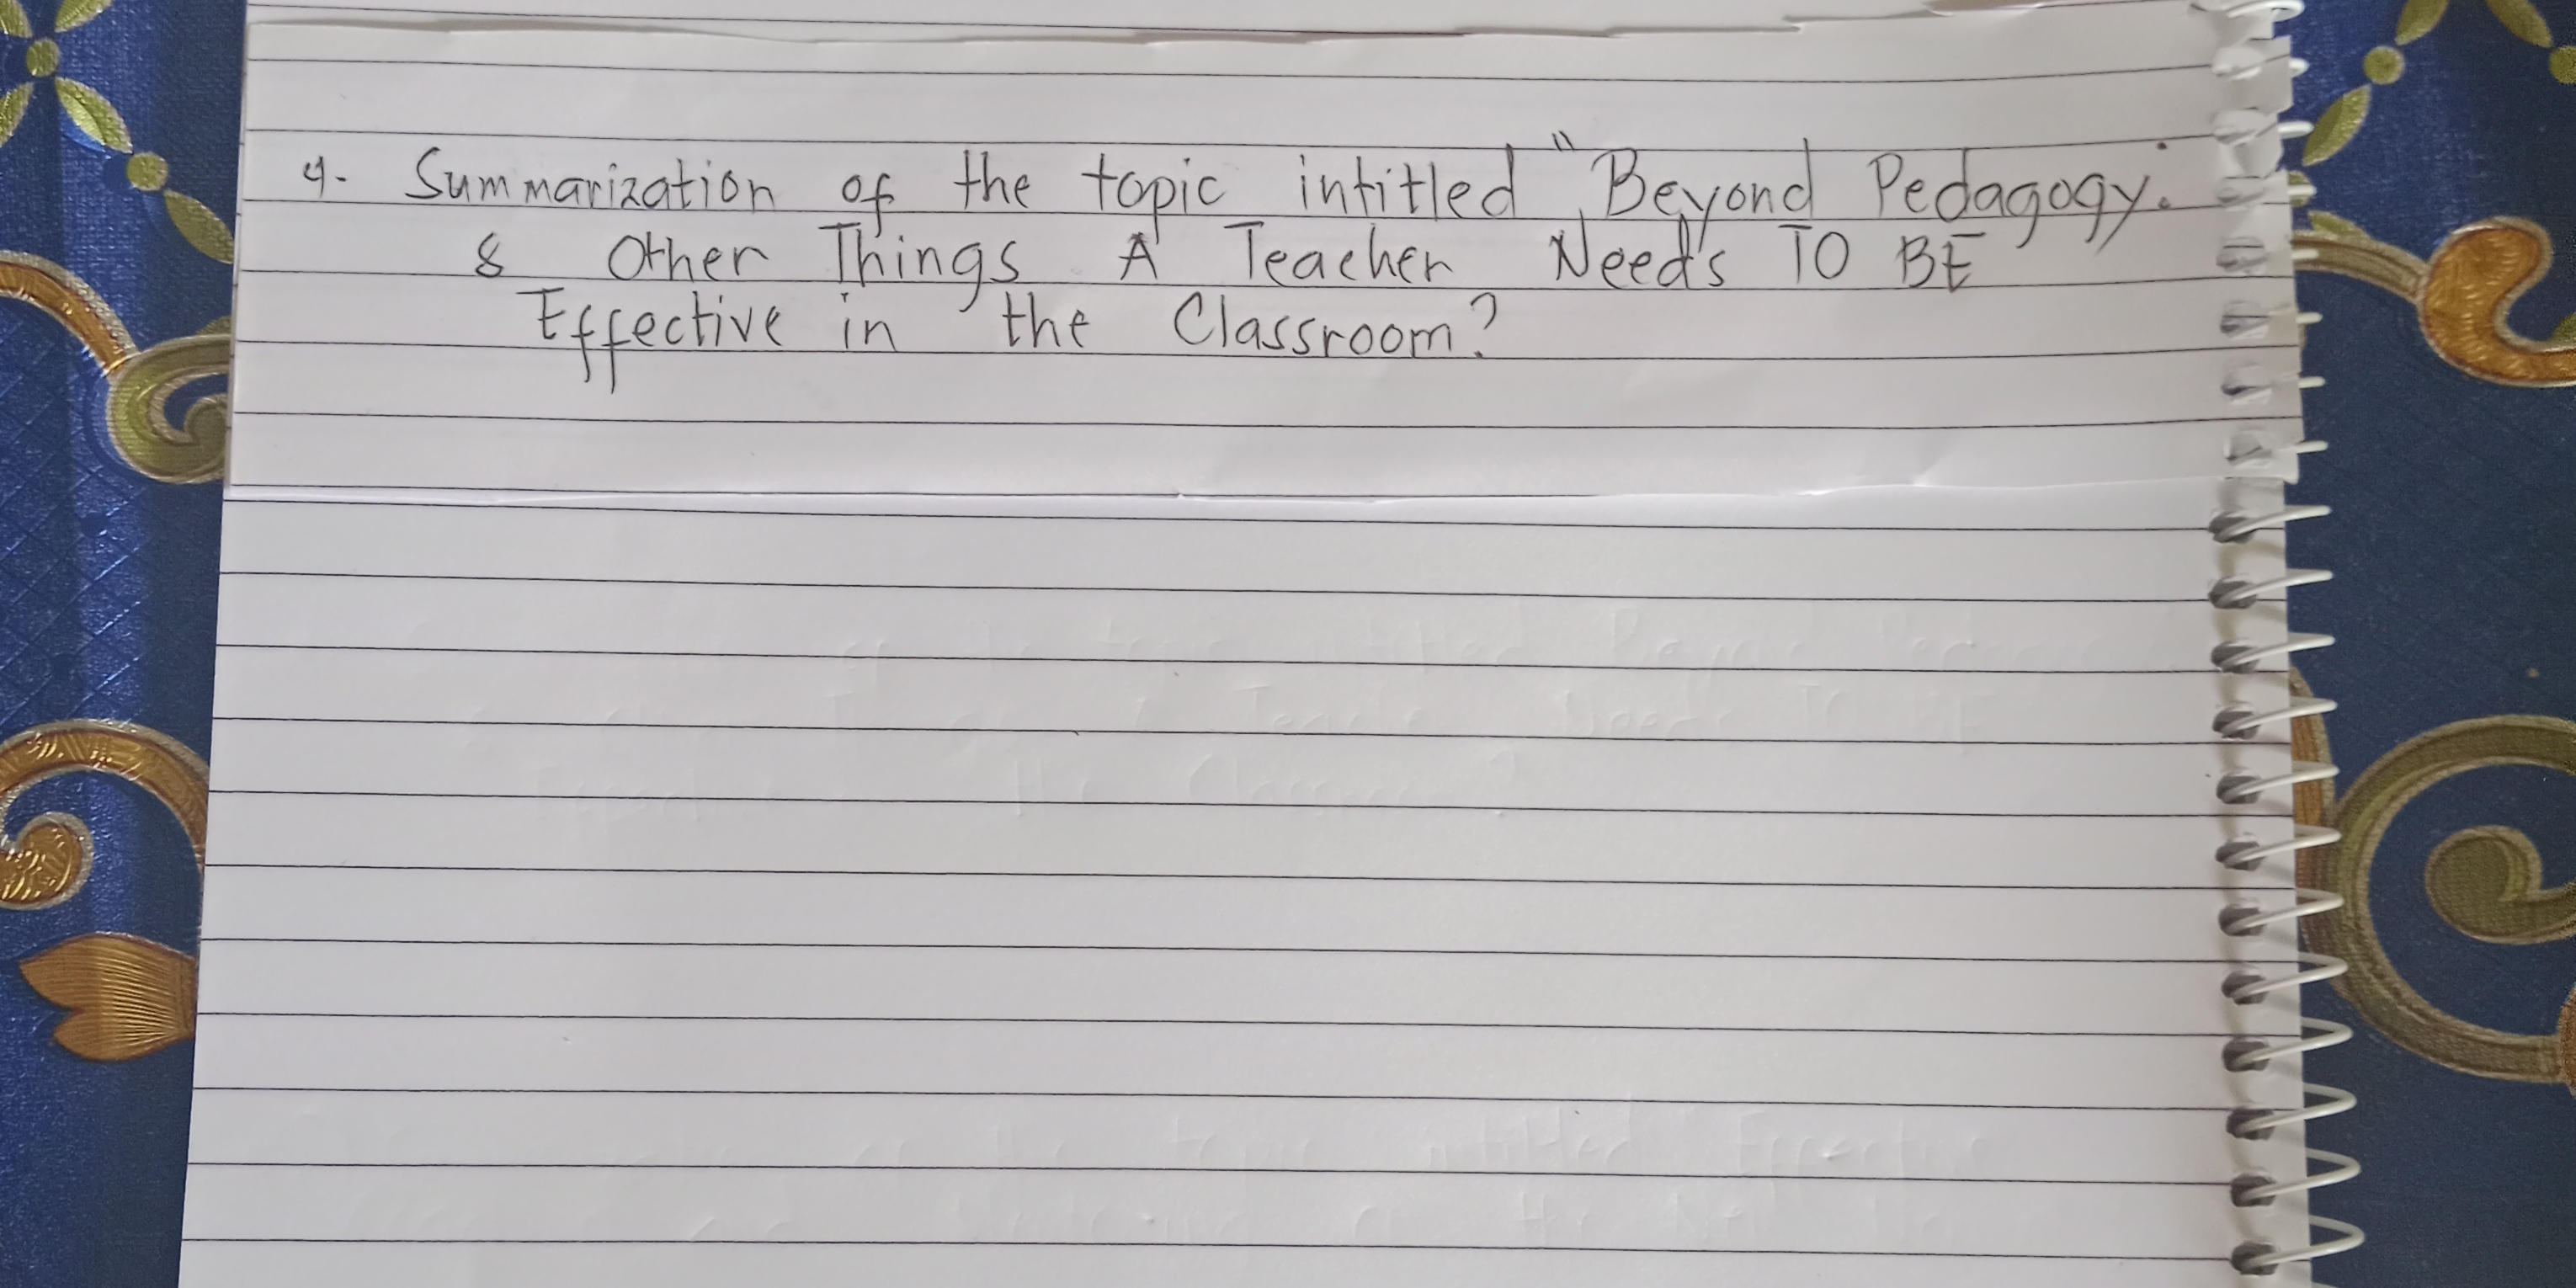 4. Summarization of the topic intitled "Beyond Pedagogy:
8 Other Things A Teacher Needs TO BE
Effective in the Classroom?